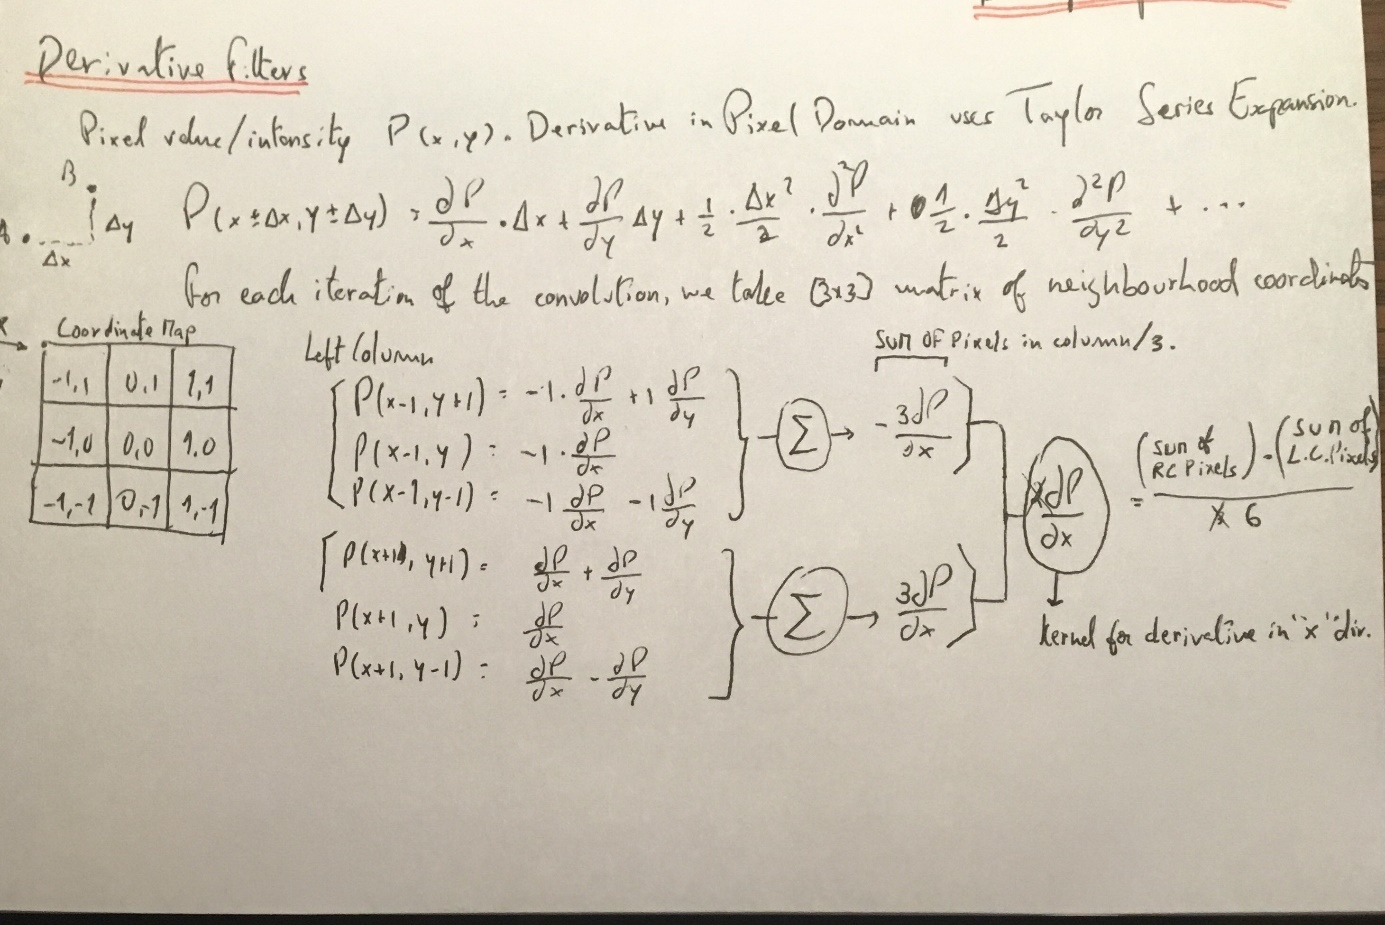 Derivative filters
Pixel value/intensity P(x,y). Derivative in Pixel Domain uses Taylor Series Expansion.
B
Δy
Δx
P(x±Δx, y±Δy) = ∂P/∂x · Δx + ∂P/∂y Δy + 1/2 · Δx²/2 · ∂²P/∂x² + 1/2 · Δy²/2 · ∂²P/∂y² + ...
for each iteration of the convolution, we take [3x3] matrix of neighbourhood coordinates
Coordinate Map
-1,1 0,1 1,1
-1,0 0,0 1,0
-1,-1 0,-1 1,-1
Left Column
P(x-1, y+1) = -1 · ∂P/∂x + 1 ∂P/∂y
P(x-1, y) = -1 · ∂P/∂x
P(x-1, y-1) = -1 ∂P/∂x - 1 ∂P/∂y
Σ → -3∂P/∂x
P(x+1, y+1) = ∂P/∂x + ∂P/∂y
P(x+1, y) = ∂P/∂x
P(x+1, y-1) = ∂P/∂x - ∂P/∂y
Σ → 3∂P/∂x
Sum of Pixels in column/3.
∂P/∂x = (Sum of RC Pixels) - (Sum of L.C. Pixels) / 6
kernel for derivative in "x" dir.